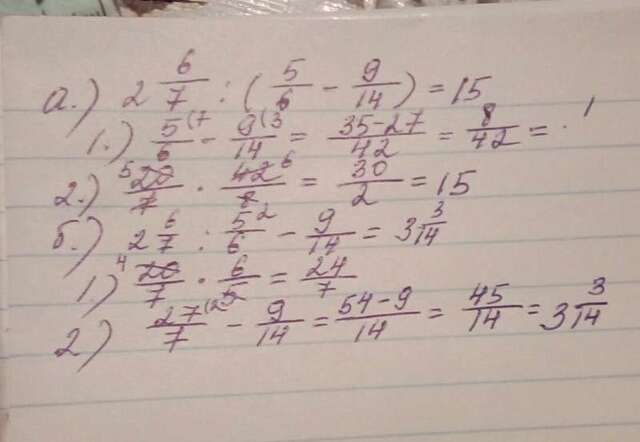 а.) 2 6/7 : (5/6 - 9/14) = 15
1.) 5(7/6 - 9(3/14 = 35-27/42 = 8/42 =
2.) 5 20/7 · 42 6/8 = 30/2 = 15
б.) 2 6/7 : 5 2/6 - 9/14 = 3 3/14
1.) 4 20/7 · 6/5 = 24/7
2) 27(2/7 - 9/14 = 54-9/14 = 45/14 = 3 3/14